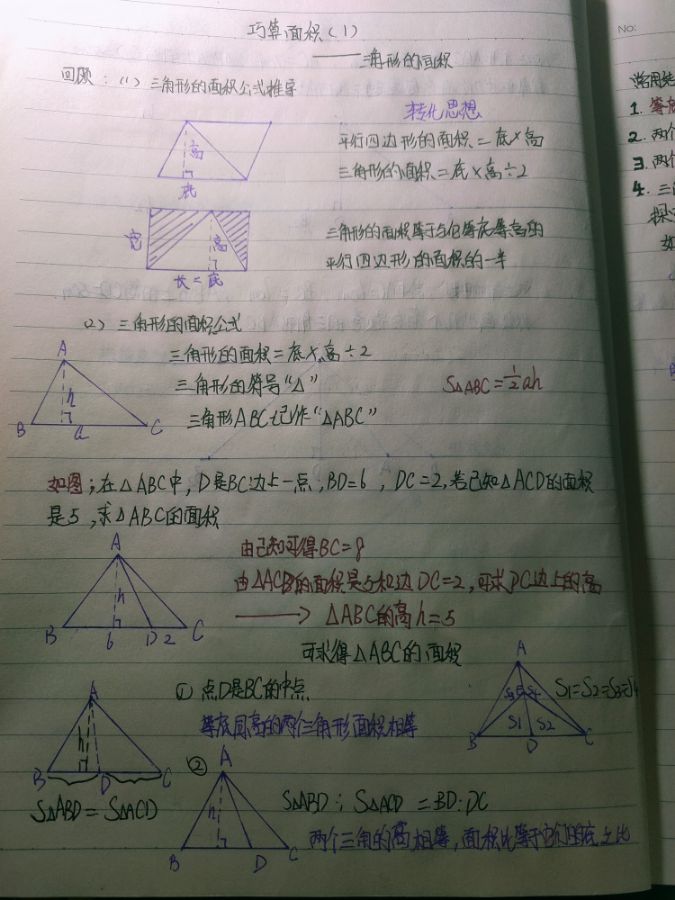 巧算面积（1）
——三角形的面积
No:
回顾：（1）三角形的面积公式推导
转化思想
高
底
平行四边形的面积＝底×高
三角形的面积＝底×高÷2
宽
高
长＝底
三角形的面积等于与它等底等高的
平行四边形的面积的一半
（2）三角形的面积公式
A
h
B a C
三角形的面积＝底×高÷2
三角形的符号“△”
三角形ABC记作“△ABC”
S△ABC＝½ah
如图；在△ABC中，D是BC边上一点，BD=6，DC=2，若已知△ACD的面积
是5，求△ABC的面积
A
h
B 6 D 2 C
由已知可得BC=8
的面积是5和边DC=2，可求DC边上的高
→ △ABC的高h=5
可求得△ABC的面积
A
h
B D C
S△ABD＝S△ACD
① 点D是BC的中点
等底同高的两个三角形面积相等
A
S3 S4
S1 S2
B D C
S1=S2=S3=S4
②
A
h
B D C
S△ABD：S△ACD＝BD:DC
两个三角的高相等，面积比等于它们的底之比
1.
2. 两个
3. 两个
4. 三